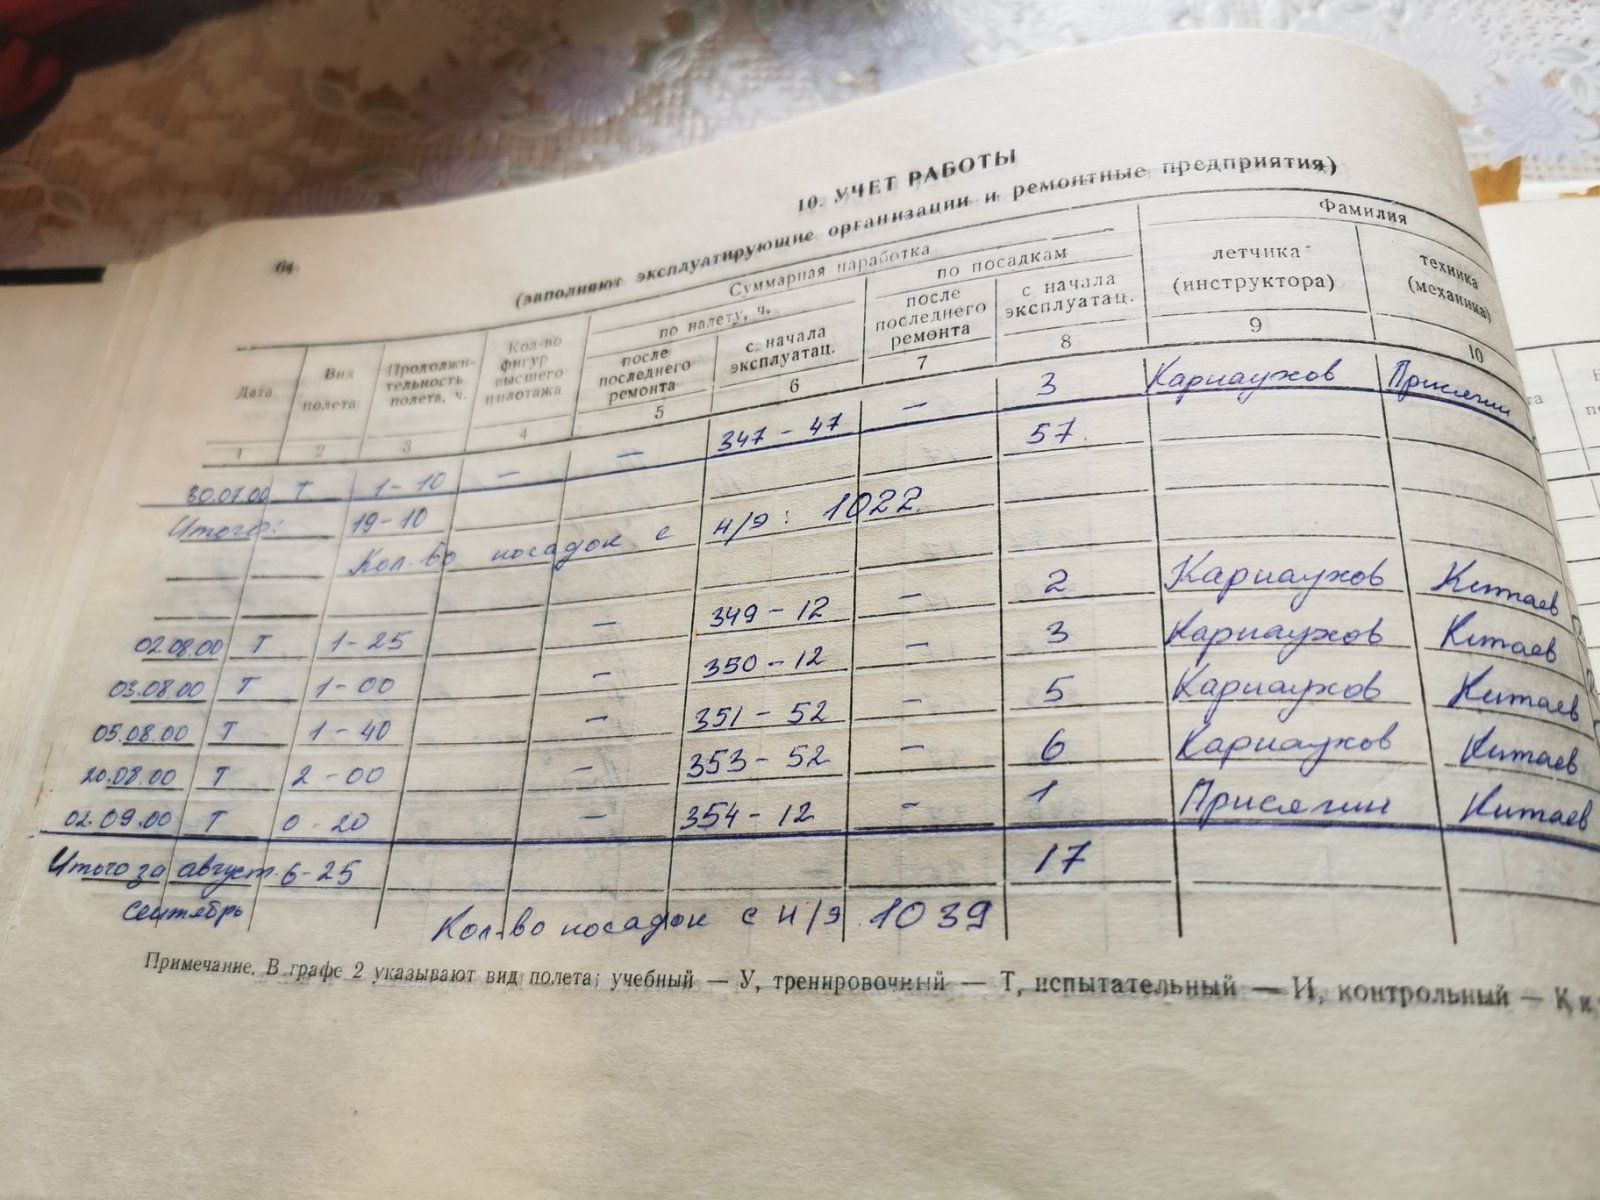 64
10. УЧЕТ РАБОТЫ
(заполняют эксплуатирующие организации и ремонтные предприятия)
Дата
Вид полета
Продолжительность полета, ч.
Кол-во фигур высшего пилотажа
Суммарная наработка
по налету, ч.
после последнего ремонта
с начала эксплуатац.
по посадкам
после последнего ремонта
с начала эксплуатац.
Фамилия
летчика (инструктора)
техника (механика)
1 2 3 4 5 6 7 8 9 10
30.07.00 Т 1-10 — — 347-47 — 3 Карнаухов Присягин
Итого: 19-10 57.
Кол-во посадок с н/э: 1022.
02.08.00 Т 1-25 — 349-12 — 2 Карнаухов Китаев
03.08.00 Т 1-00 — 350-12 — 3 Карнаухов Китаев
05.08.00 Т 1-40 — 351-52 — 5 Карнаухов Китаев
20.08.00 Т 2-00 — 353-52 — 6 Карнаухов Китаев
02.09.00 Т 0-20 — 354-12 — 1 Присягин Китаев
Итого за август. 6-25 17
сентябрь Кол-во посадок с н/э. 1039
Примечание. В графе 2 указывают вид полета: учебный — У, тренировочный — Т, испытательный — И, контрольный — К и